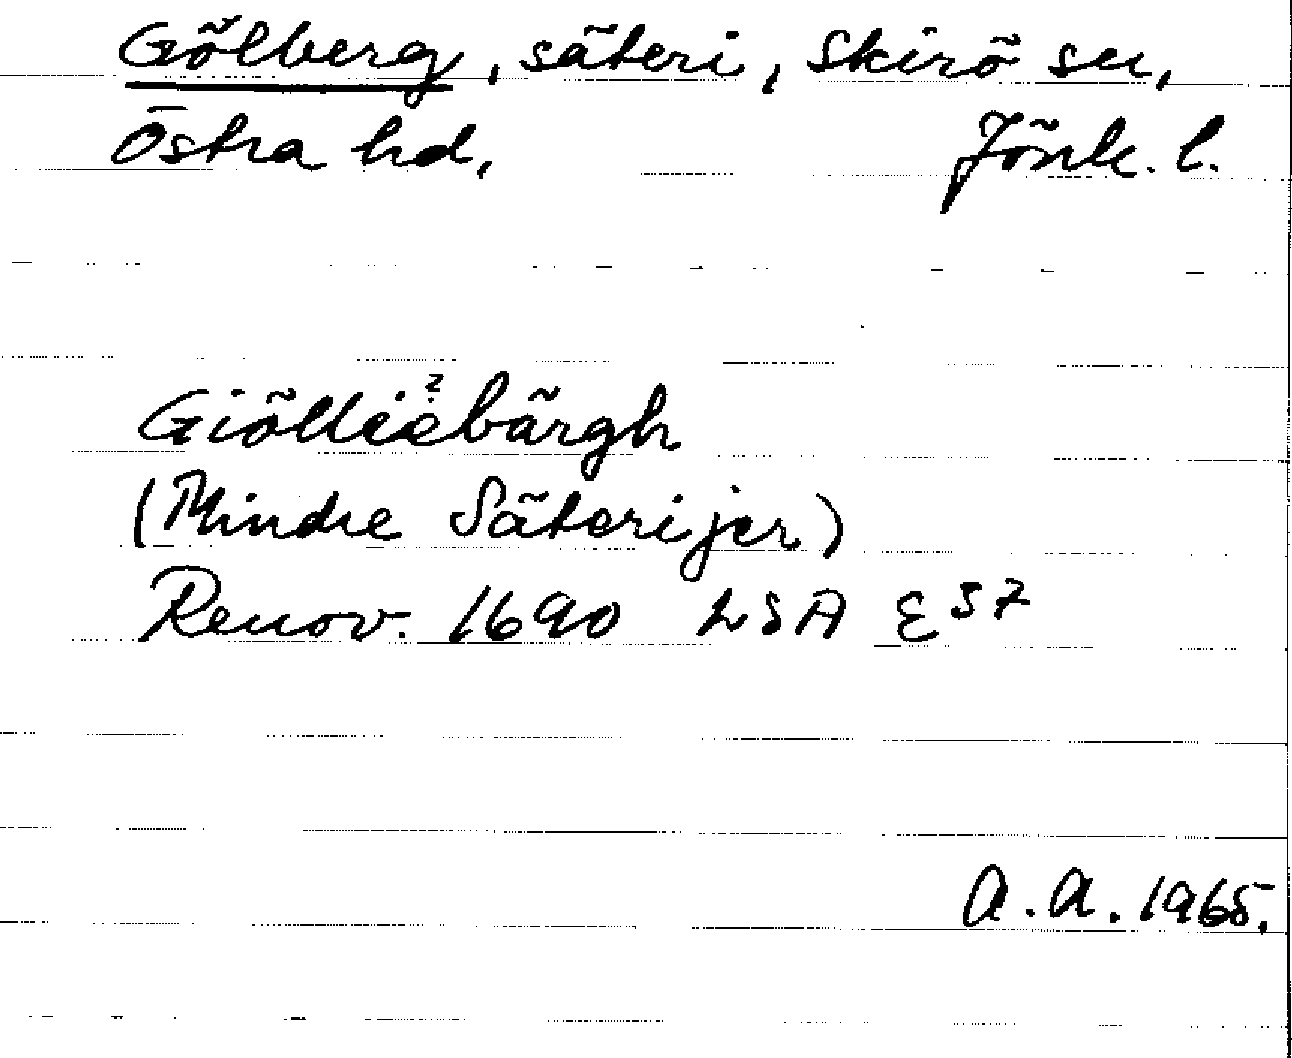 Gölberg, säteri, Skirö sn,
Östra hd, Jönk. l.
Giölliebärgh
(Mindre Säterijer)
Renov. 1690 LSA E 57
A.A. 1965.